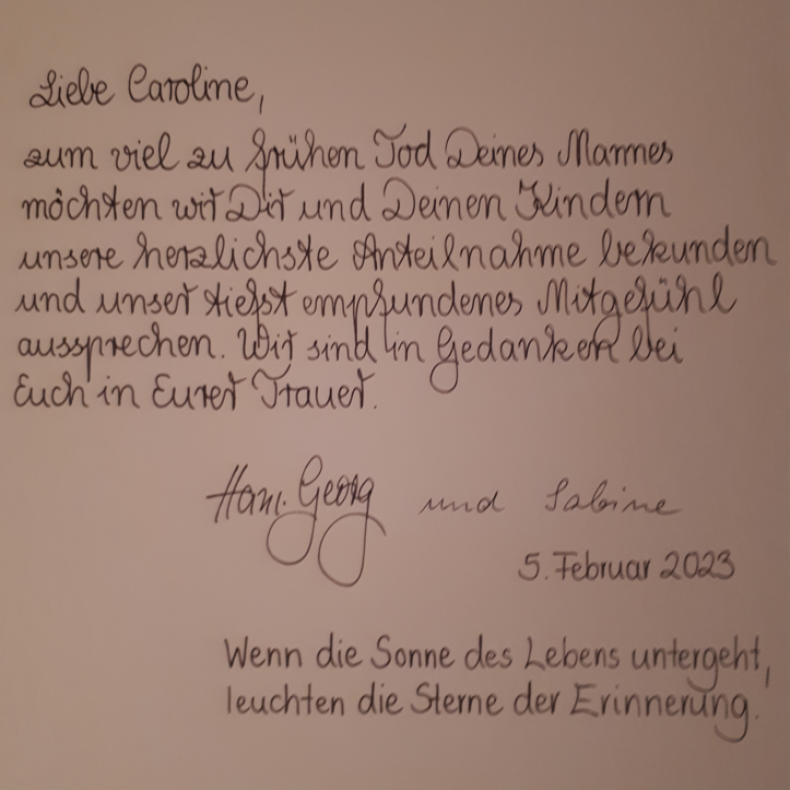 Liebe Caroline,
zum viel zu frühen Tod Deines Mannes
möchten wir Dir und Deinen Kindern
unsere herzlichste Anteilnahme bekunden
und unser tiefst empfundenes Mitgefühl
aussprechen. Wir sind in Gedanken bei
Euch in Eurer Trauer.
Hans-Georg und Sabine
5. Februar 2023
Wenn die Sonne des Lebens untergeht,
leuchten die Sterne der Erinnerung.